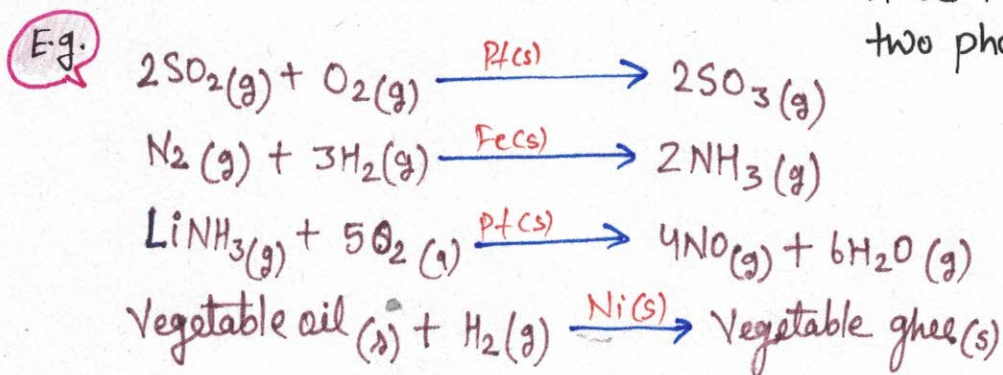 two pho
E.g.
2SO2(g) + O2(g) Pt(s) → 2SO3(g)
N2(g) + 3H2(g) Fe(s) → 2NH3(g)
LiNH3(g) + 5O2(g) Pt(s) → 4NO(g) + 6H2O(g)
Vegetable oil(s) + H2(g) Ni(s) → Vegetable ghee(s)